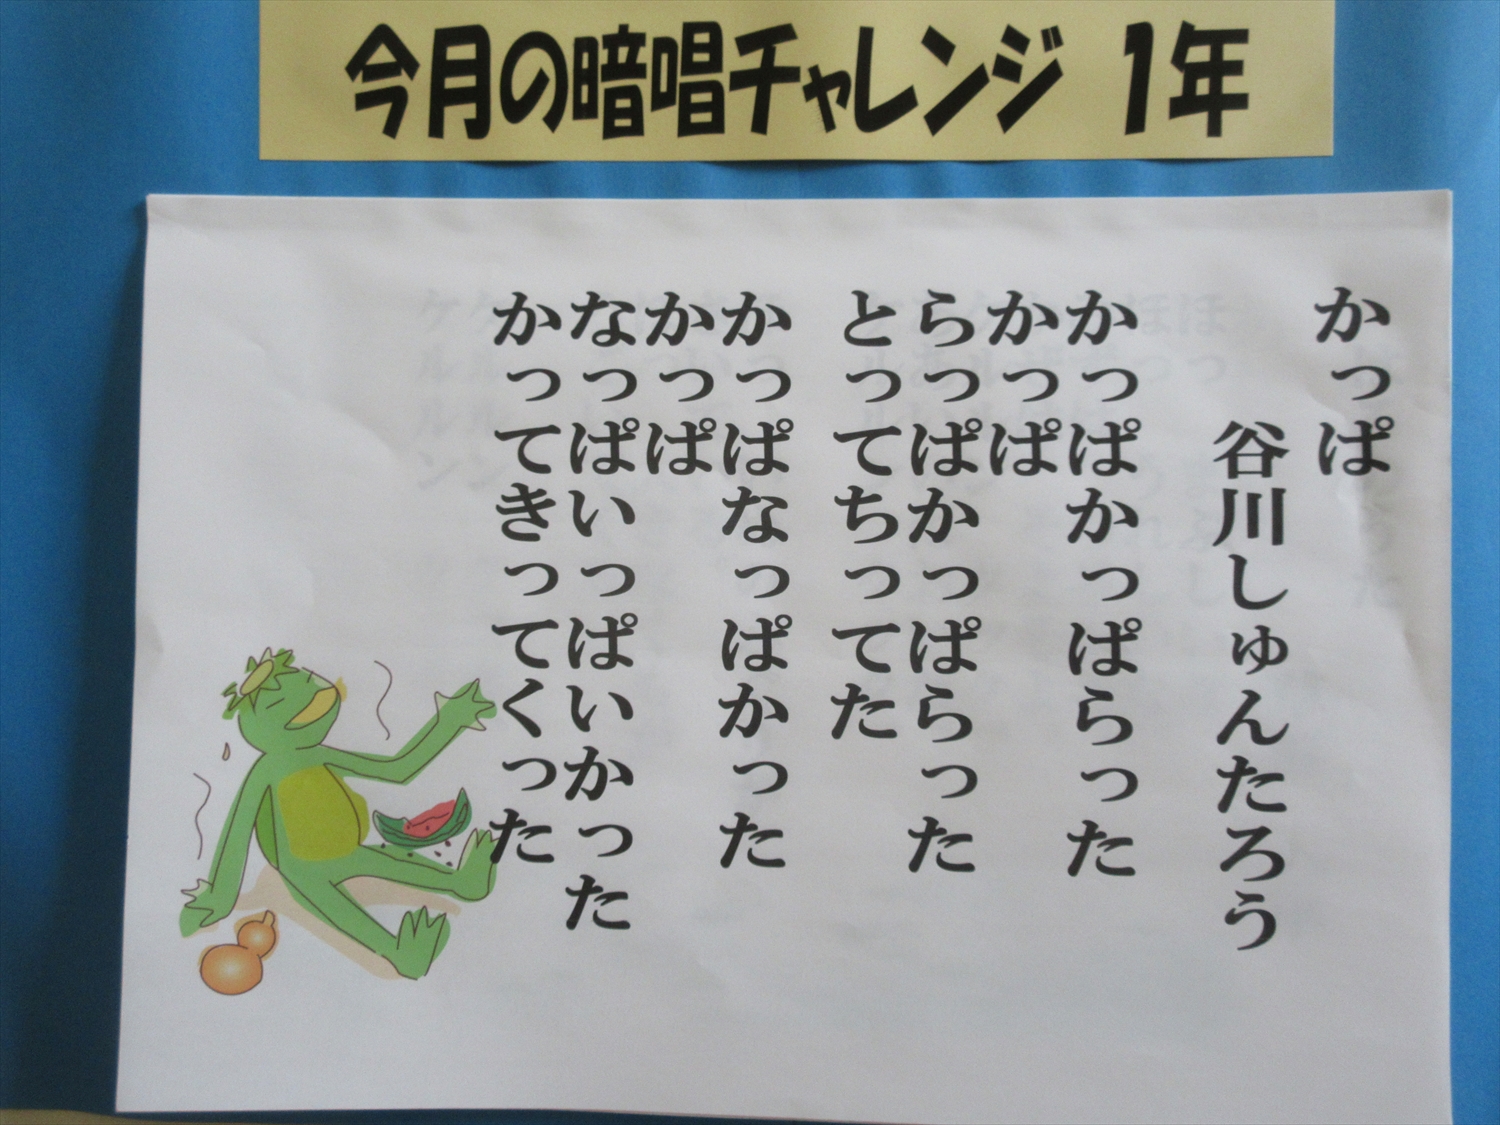 今月の暗唱チャレンジ 1年
かっぱ
谷川しゅんたろう
かっぱかっぱらった
かっぱ
らっぱかっぱらった
とってちってた
かっぱなっぱかった
かっぱ
なっぱいっぱいかった
かってきってくった